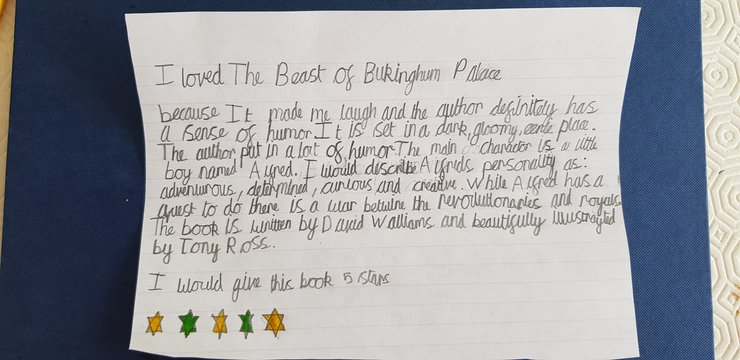 I loved The Beast of Bukinghum Palace
because It made me laugh and the author definitely has
a sense of humor. It is set in a dark, gloomy, place.
The author put in a lot of humor. The main character is a little
boy named Alfred. I would describe Alfreds personality as:
adventurous, determined, curious and creative. While Alfred has a
quest to do there is a war between the revolutionaries and royals.
The book is written by David Walliams and beautifully illustrayted
by Tony Ross.
I would give this book 5 stars